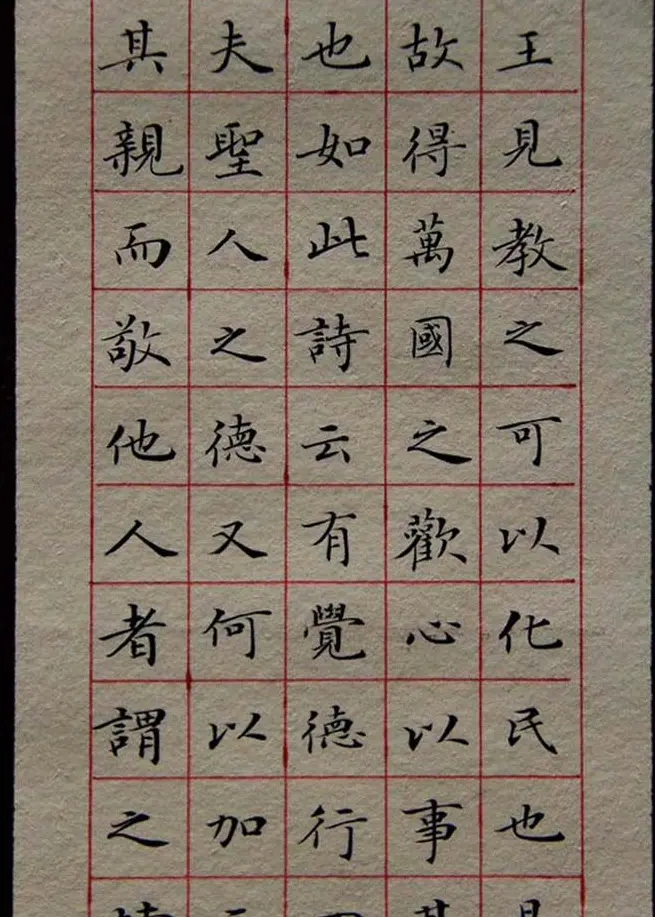 王見教之可以化民也
故得萬國之歡心以事
也如此詩云有覺德行
夫聖人之德又何以加
其親而敬他人者謂之